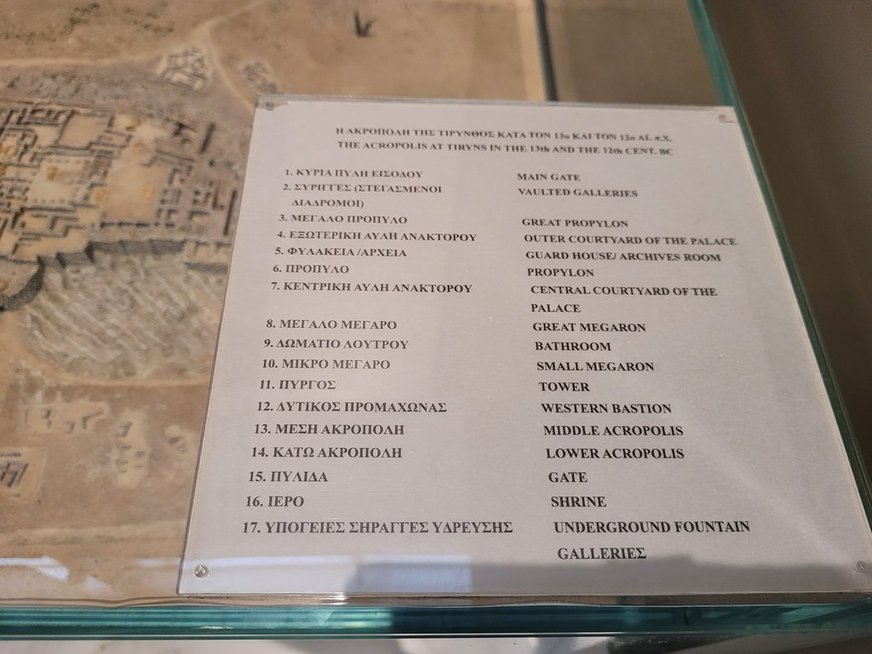 Η ΑΚΡΟΠΟΛΗ ΤΗΣ ΤΙΡΥΝΘΟΣ ΚΑΤΑ ΤΟΝ 13ο ΚΑΙ ΤΟΝ 12ο ΑΙ. π.Χ.
THE ACROPOLIS AT TIRYNS IN THE 13th AND THE 12th CENT. BC
1. ΚΥΡΙΑ ΠΥΛΗ ΕΙΣΟΔΟΥ MAIN GATE
2. ΣΥΡΙΓΓΕΣ (ΣΤΕΓΑΣΜΕΝΟΙ VAULTED GALLERIES
ΔΙΑΔΡΟΜΟΙ)
3. ΜΕΓΑΛΟ ΠΡΟΠΥΛΟ GREAT PROPYLON
4. ΕΞΩΤΕΡΙΚΗ ΑΥΛΗ ΑΝΑΚΤΟΡΟΥ OUTER COURTYARD OF THE PALACE
5. ΦΥΛΑΚΕΙΑ /ΑΡΧΕΙΑ GUARD HOUSE/ ARCHIVES ROOM
6. ΠΡΟΠΥΛΟ PROPYLON
7. ΚΕΝΤΡΙΚΗ ΑΥΛΗ ΑΝΑΚΤΟΡΟΥ CENTRAL COURTYARD OF THE
PALACE
8. ΜΕΓΑΛΟ ΜΕΓΑΡΟ GREAT MEGARON
9. ΔΩΜΑΤΙΟ ΛΟΥΤΡΟΥ BATHROOM
10. ΜΙΚΡΟ ΜΕΓΑΡΟ SMALL MEGARON
11. ΠΥΡΓΟΣ TOWER
12. ΔΥΤΙΚΟΣ ΠΡΟΜΑΧΩΝΑΣ WESTERN BASTION
13. ΜΕΣΗ ΑΚΡΟΠΟΛΗ MIDDLE ACROPOLIS
14. ΚΑΤΩ ΑΚΡΟΠΟΛΗ LOWER ACROPOLIS
15. ΠΥΛΙΔΑ GATE
16. ΙΕΡΟ SHRINE
17. ΥΠΟΓΕΙΕΣ ΣΗΡΑΓΓΕΣ ΥΔΡΕΥΣΗΣ UNDERGROUND FOUNTAIN
GALLERIES